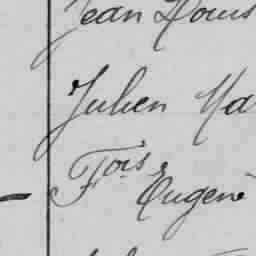 Jean Louis
Julien Ma
Fois
Eugene